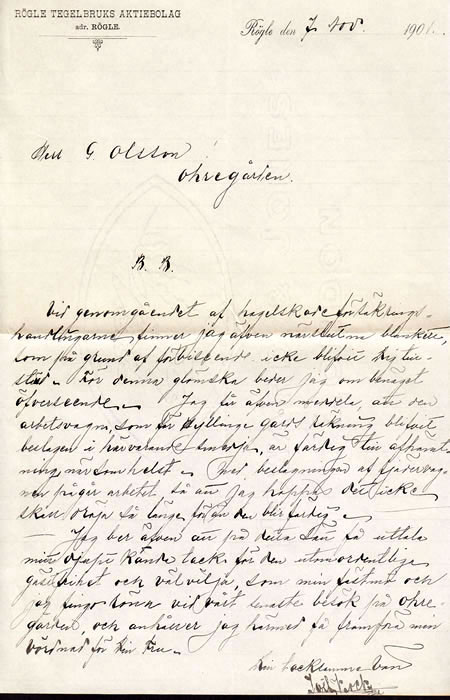 RÖGLE TEGELBRUKS AKTIEBOLAG
adr. RÖGLE.
Rögle den 7 Nov. 1901.
Herr G. Olsson
Ohregården.
B. B.
Vid genomgåendet af hagelskadeförsäkrings-
handlingarne finner jag äfven närslutna blankett,
som på grund af förbiseende icke blifvit
För denna glömska beder jag om benäget
öfverseende. Jag får äfven meddela, att den
arbetsvagn, som för gårds räkning blifvit
beslagen i härvarande smedja, är färdig till afhämt-
ning när som helst. Med beslagningen af fjädervag-
nen pågår arbetet så att jag hoppas det icke
skall dröja så länge förr än den blir färdig.
Jag ber äfven att på detta sätt få uttala
min djupt kända tack för den utomordentliga
gästfrihet och välvilja som min och
jag fingo röna vid vårt senaste besök på Ohre-
gården, och anhåller jag härmed få framföra min
vördnad för Din Fru.
Din tacksamme Vän